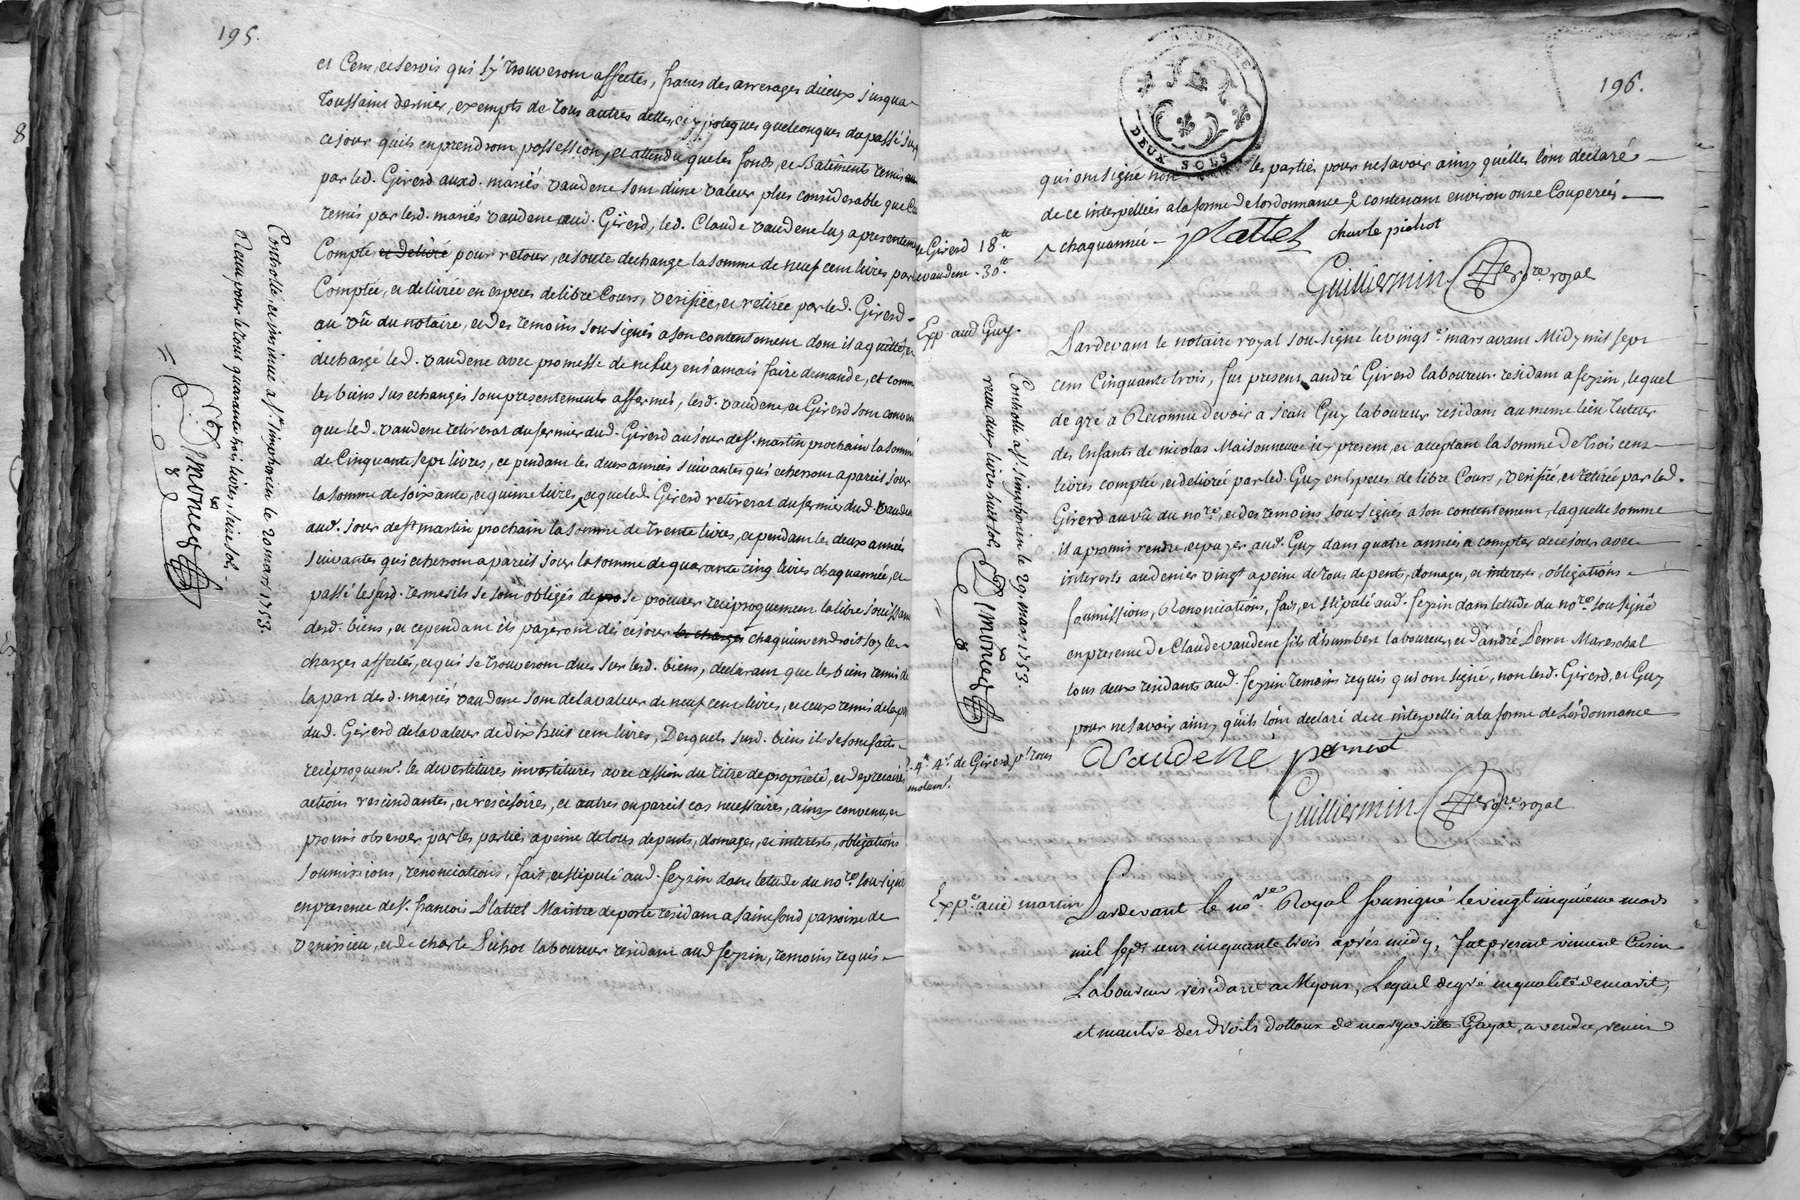 195.
et Cens, et servis qui s'y trouveront affectés, francs des arrerages diceux jusqua
toussaint dernier, exempts de tous autres dettes, et ypoteques quelconques du passé jusq
ce jour quils en prendront possession, et attendu que les fonds, et Batiments remis
par led. Girerd auxd. mariés vaudene sont d'une valeur plus considerable que
remis par lesd. mariés vaudene aud. Girerd, led. Claude vaudene luy a presentem
Compté et delivré pour retour, et soute dechange la somme de neuf cent livres par
Comptée, et delivrée en especes de libre Cours, verifiée, et retirée par led. Girerd
au vû du notaire, et des temoins sousignés a son contentement dont il a quitté, et
dechargé led. vaudene avec promesse de ne luy en jamais faire demande, et comme
les biens sus echangés sont presentement affermés, lesd. vaudene et Girerd sont convenu
que led. vaudene retirerat du fermier dud. Girerd au jour de st. martin prochain la somme
de Cinquante sept livres, et pendant les deux années suivantes qui echerront a pareil jour
la somme de soixante, et quinze livres, et que led. Girerd retirerat du fermier dud. vaudene
aud. jour de st martin prochain la somme de trente livres, et pendant les deux années
suivantes qui echerront a pareil jour la somme de quarante cinq livres chaqu'année, et
passé lesd. termes ils se sont obligés de se procurer reciproquement la libre jouissance
desd. biens, et cependant ils payeront dès ce jour les charges chaqu'un endroit soy les
charges affectés, et qui se trouveront dues sur lesd. biens, declarant que les biens remis de
la part desd. mariés vaudene sont de la valeur de neuf cent livres, et ceux remis de la part
dud. Girerd de la valeur de dix huit cent livres, Desquels susd. biens ils se sont faits
reciproquemt. les devestitures investitures avec cession du titre de proprieté, et de precaire
actions rescindantes, et rescisoires, et autres en pareil cas necessaires, ainsy convenu, et
promis observer par les parties a peine de tous depents, domages, et interests, obligations
soumissions, renonciations, fait, et stipulé aud. feyzin dans letude du nore. sousigné
en presence de sr. francois Plattel Maistre de poste residant a saint fond parroisse de
venissieu, et de charle Pichot laboureur residant aud. feyzin, temoins requis
Controllé et insinué a st. simphorien le 20 mars 1753.
Recu pour le tout quarante trois livres, six sols
Simonet
196.
DEUX SOLS
qui ont signé non les parties pour ne savoir ainsy quelles lont declaré
de ce interpellées a la forme de lordonnance, & contenant environ onze Couperées
chaquannée Plattel charle pichot
de Girerd 18.tt
vaudene 30.tt
Guilliermin nore. royal
Exp. aud Guy.
Pardevant le notaire royal sousigné le vingt.e mars avant Midy mil sept
cent Cinquante trois, fut present andré Girerd laboureur residant a feyzin, lequel
de gré a Reconnu devoir a jean Guy laboureur residant au meme lieu tuteur
des Enfants de nicolas Maisonneuve icy present, et acceptant la somme de trois cens
livres comptée, et delivrée par led. Guy en especes de libre Cours, verifiée, et retirée par led.
Girerd au vû du nore. et des temoins sousignés a son contentement, laquelle somme
il a promis rendre, et payer aud. Guy dans quatre années a compter de ce jour avec
interests au denier vingt a peine de tous depents, domages, et interests, obligations
soumissions, Renonciations, fait, et stipulé aud. feyzin dans letude du nore. sousigné
en presence de Claude vaudene fils d'humbert laboureur, et d'andré Perret Mareschal
tous deux residants aud. feyzin temoins requis qui ont signé, non lesd. Girerd, et Guy
pour ne savoir ainsy quils lont declaré de ce interpellés a la forme de Lordonnance
Controllé a st. simphorien le 29. mars 1753.
recu deux livres huit sols
Simonet
4tt 4s. de Girerd pr tous
Vaudene
Guilliermin nore. royal
Expe. aud martin
Pardevant le nore. Royal soussigné le vingt cinquième mars
mil sept cens cinquante trois après midy, fut present vincent Cusin
Laboureur résidant a Myons, Lequel de gré en qualité de marit,
et maistre des droits dottaux de margueritte Gayet, a vendu, remis